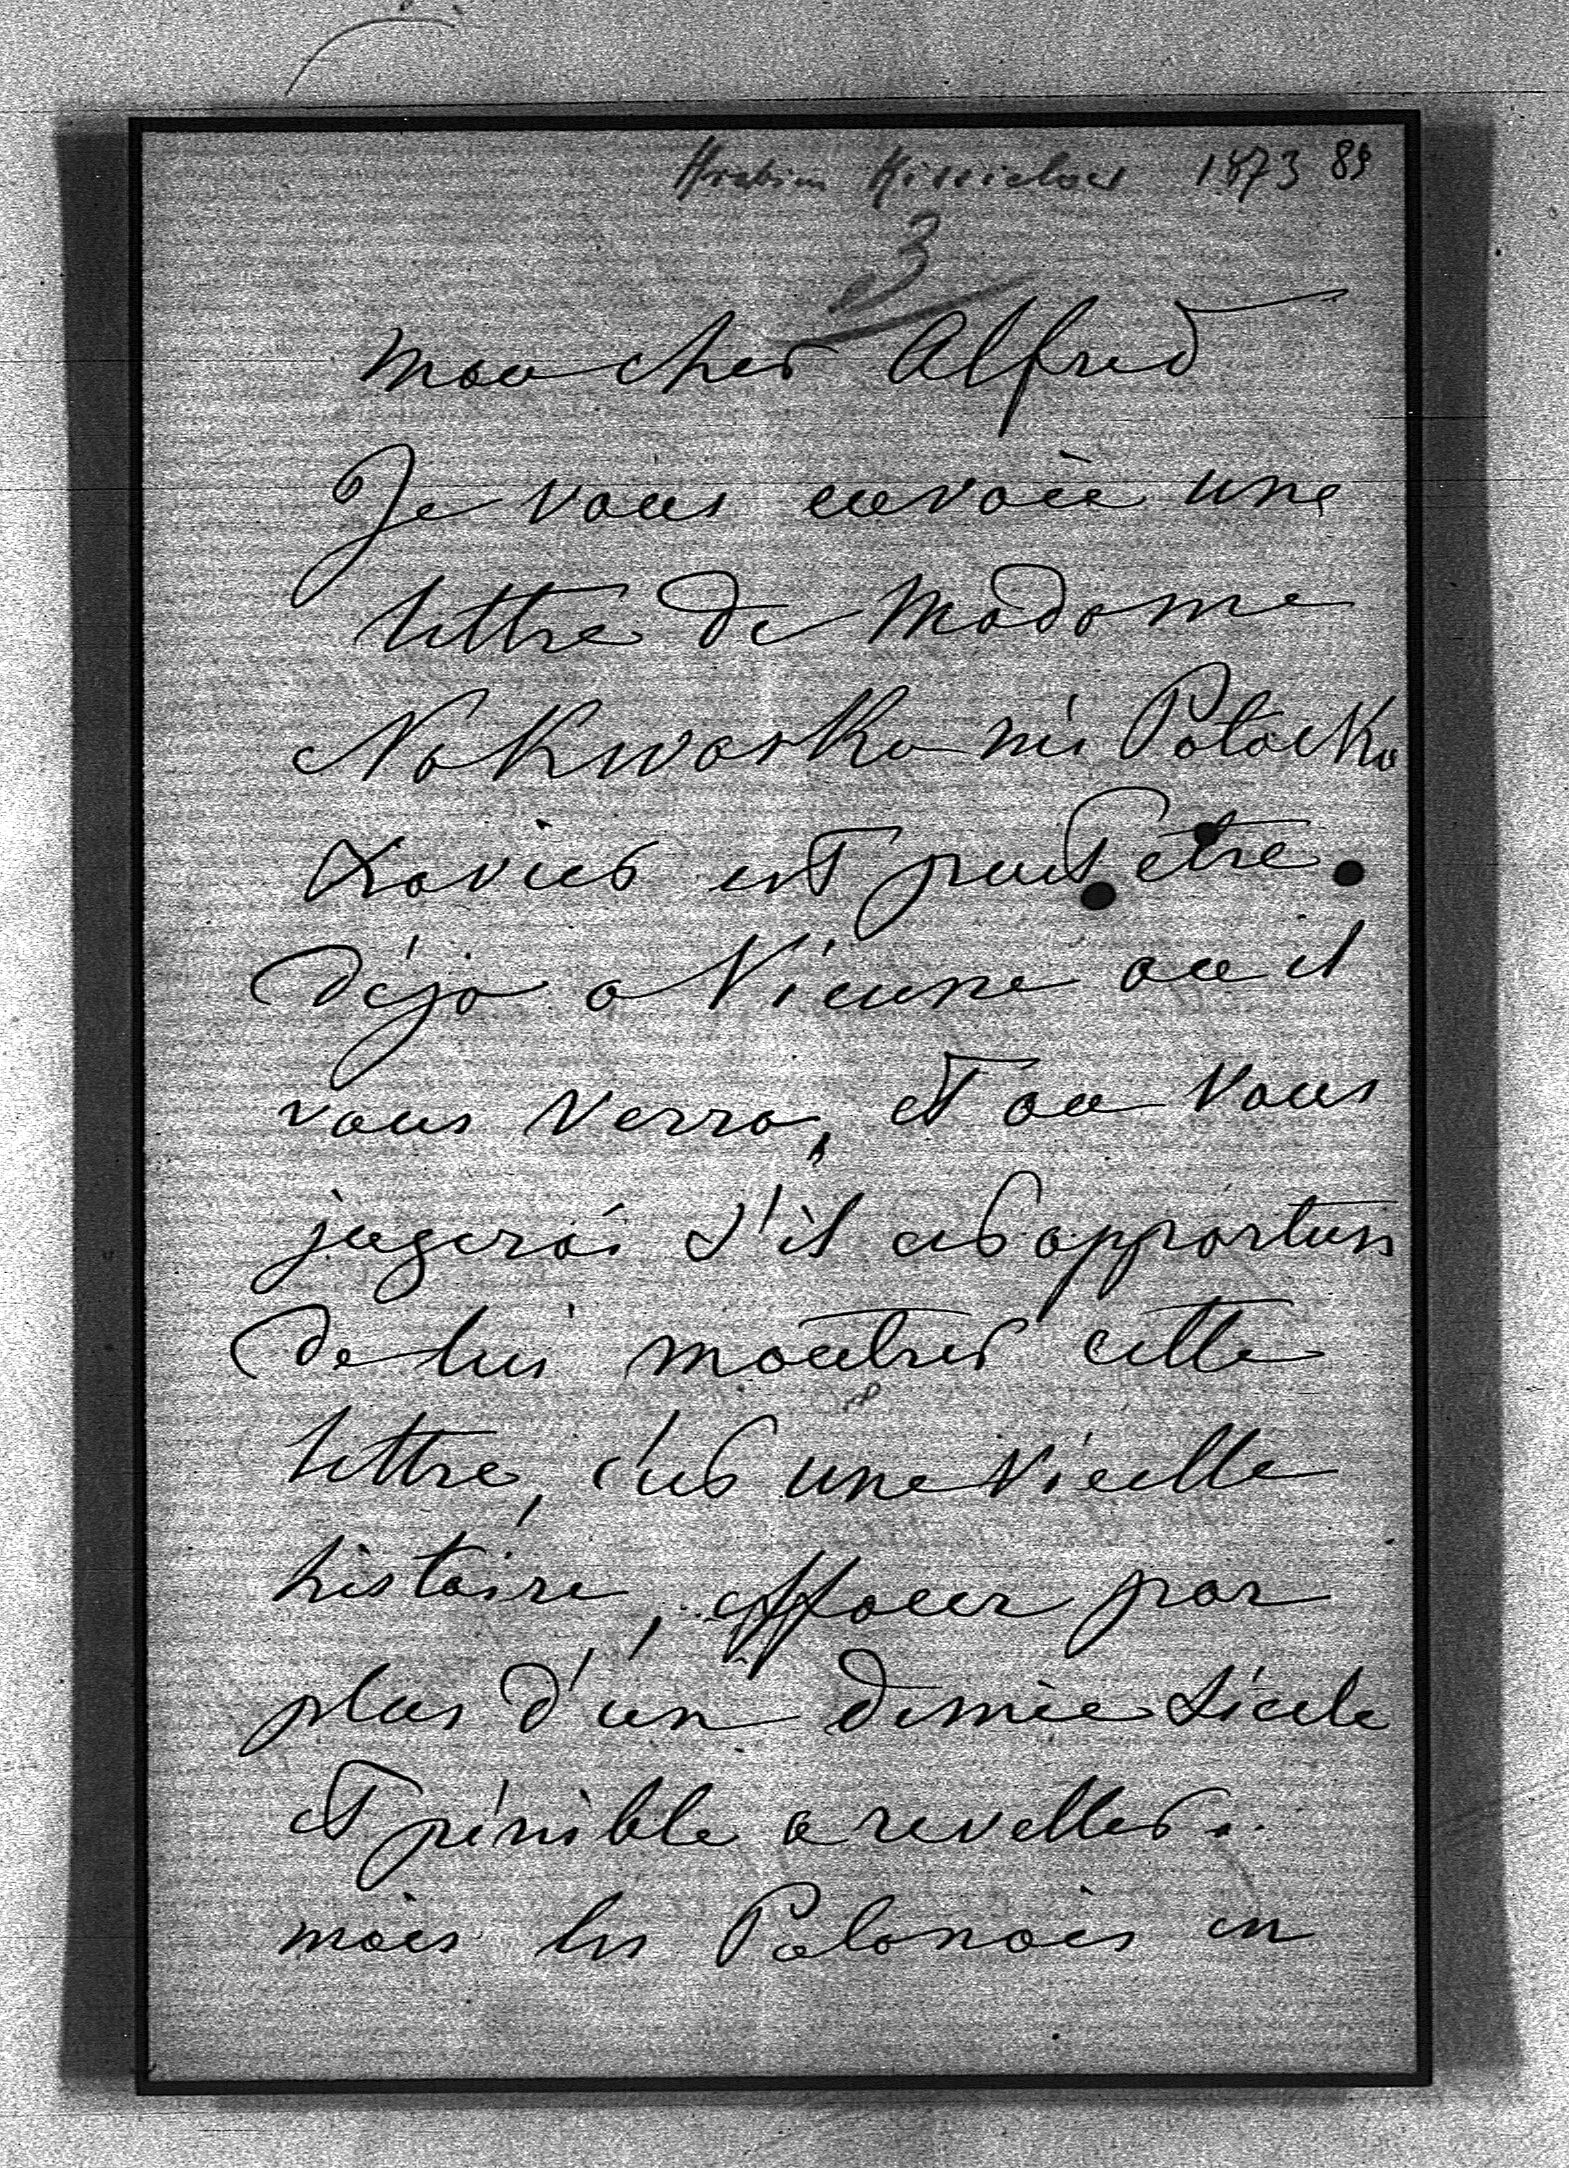 Hrabina Kissielew 1873 89
3
Mon cher Alfred
Je vous envoie une
lettre de Madame
Nakwaska née Potocka
Xavier est peut etre
déja a Vienne ou il
vous verra, et ou vous
jugerai s'il est opportun
de lui montrer cette
lettre, c'est une vieille
histoire, effacer par
plus d'un demie siecle
et pénible a reveller..
mais les Polonais en